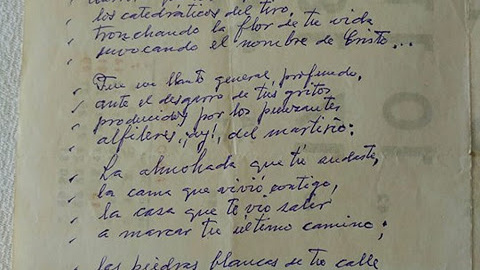 los catedráticos del tiro,
tronchando la flor de tu vida
invocando el nombre de Cristo...
Fue un llanto general, profundo,
ante el desgarro de tus gritos
producidos por los punzantes
alfileres, ¡ay!, del martirio:
La almohada que tú
la cama que vivió contigo,
la casa que te vio salir
a marcar tu último camino;
las piedras blancas de tu calle